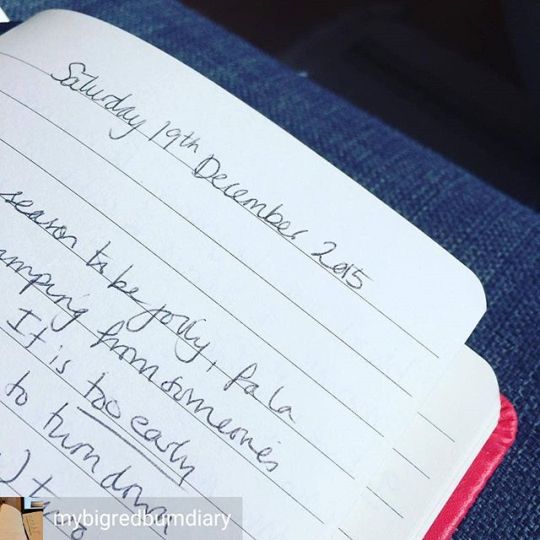 Saturday 19th December 2015
season to be jolly, fa la
from someone's
It is too early
to turn down
mybigredbumdiary